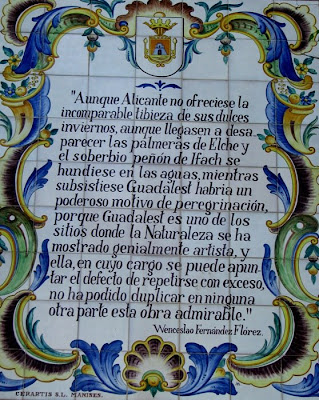 "Aunque Alicante no ofreciese la
incomparable tibieza de sus dulces
inviernos, aunque llegasen a desa
parecer las palmeras de Elche y
el soberbio peñón de Ifach se
hundiese en las aguas, mientras
subsistiese Guadalest habría un
poderoso motivo de peregrinación,
porque Guadalest es uno de los
sitios donde la Naturaleza se ha
mostrado genialmente artista, y
ella, en cuyo cargo se puede apun
tar el defecto de repetirse con exceso,
no ha podido duplicar en ninguna
otra parte esta obra admirable."
Wenceslao Fernández Flórez.
CERARTIS S.L. MANISES.